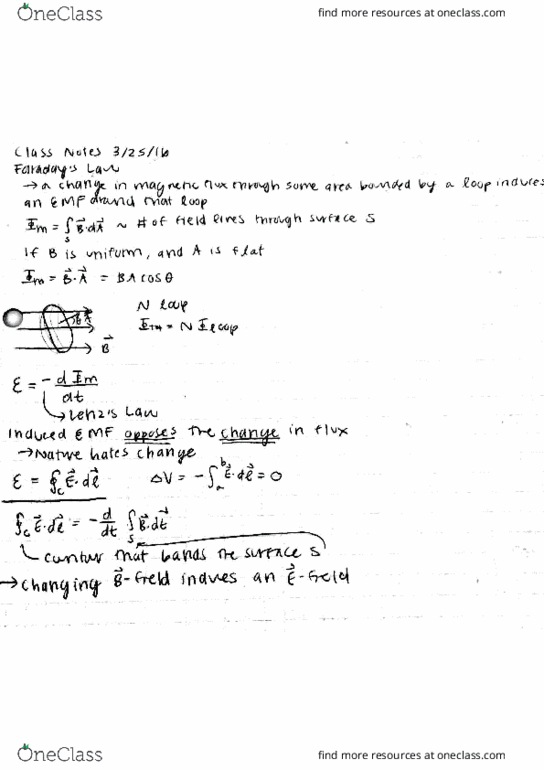 OneClass
find more resources at oneclass.com
Class Notes 3/25/16
Faraday's Law
→ a change in magnetic flux through some area bounded by a loop induces
an EMF around that loop
Φm = ∫s B⃗·dA⃗ ~ # of field lines through surface S
If B is uniform, and A is flat
Φm = B⃗·A⃗ = BA cos θ
N loop
Φm = N Φloop
B⃗
ℰ = -dΦm/dt
↳ Lenz's Law
Induced EMF opposes the change in flux
→ Nature hates change
ℰ = ∮c E⃗·dℓ⃗ ΔV = -∫a^b E⃗·dℓ⃗ = 0
∮c E⃗·dℓ⃗ = -d/dt ∫s B⃗·dt⃗
contur that bands the surface S
→ changing B⃗-field induces an E⃗-field
OneClass
find more resources at oneclass.com